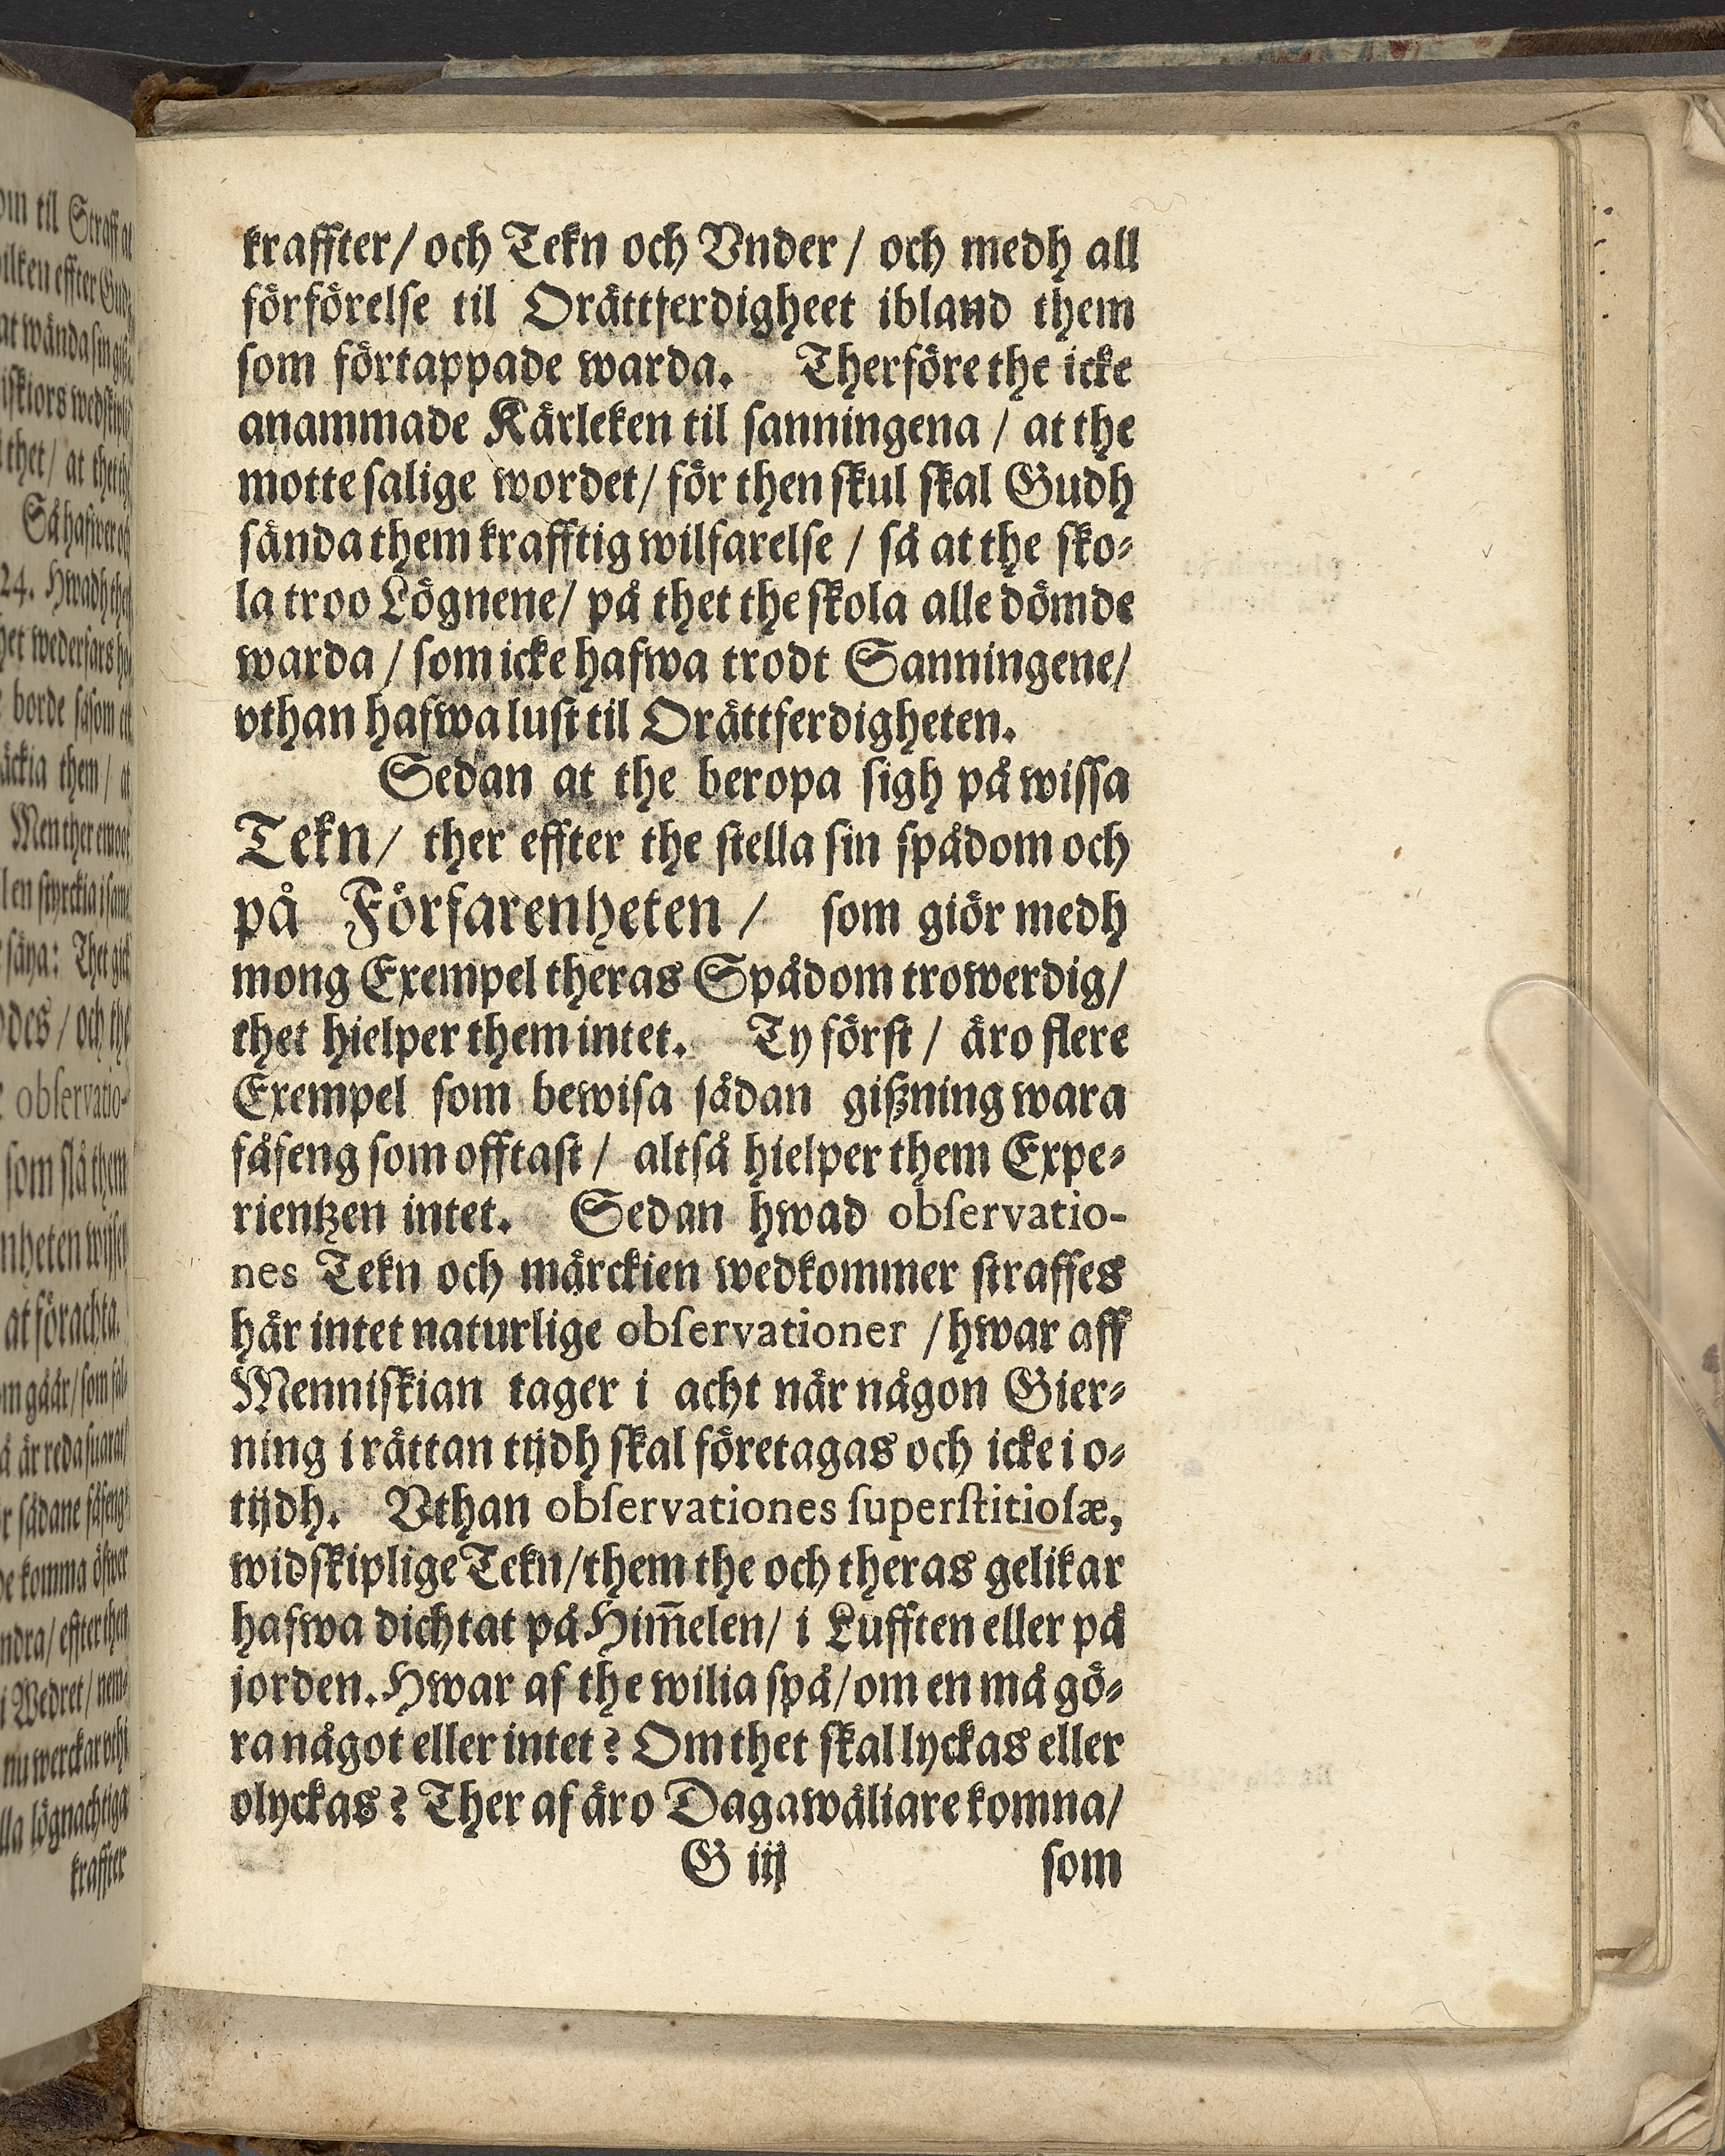 kraffter/ och Tekn och Vnder/ och medh all
förförelse til Orättferdigheet ibland them
som förtappade warda. Therföre the icke
anammade Kärleken til sanningena / at the
motte salige wordet/ för then skul skal Gudh
sända them krafftig wilfarelse / så at the sko-
la troo Lögnene/ på thet the skola alle dömde
warda / som icke hafwa trodt Sanningene/
vthan hafwa lust til Orättferdigheten.
Sedan at the beropa sigh på wissa
Tekn/ ther effter the stella sin spådom och
på Förfarenheten / som giör medh
mong Exempel theras Spådom trowerdig/
thet hielper them intet. Ty först / äro flere
Exempel som bewisa sådan gißning wara
fåfeng som offtast / altså hielper them Expe-
rientzen intet. Sedan hwad observatio-
nes Tekn och märckien wedkommer straffes
här intet naturlige observationer / hwar aff
Menniskian tager i acht när någon Gier-
ning i rättan tijdh skal företagas och icke i o-
tijdh. Vthan observationes superstitiosæ,
widskiplige Tekn/ them the och theras gelikar
hafwa dichtat på Him̃elen/ i Lufften eller på
jorden. Hwar af the wilia spå/ om en må gö-
ra något eller intet? Om thet skal lyckas eller
olyckas? Ther af äro Dagawäliare komna/
G iij som
om til Straff at
effter Gud-
at wända sin
thet/ at thet
Så hafwer
24. Hwadh
borde såsom
them/ at
Men ther emoot
/ och the
observatio-
som slå them
at förachta.
gåår/ som
är reda
sådane fåfeng-
komma öfwer
effter then
i Wedret/ nem-
nu werckar
lögnachtiga
kraffter